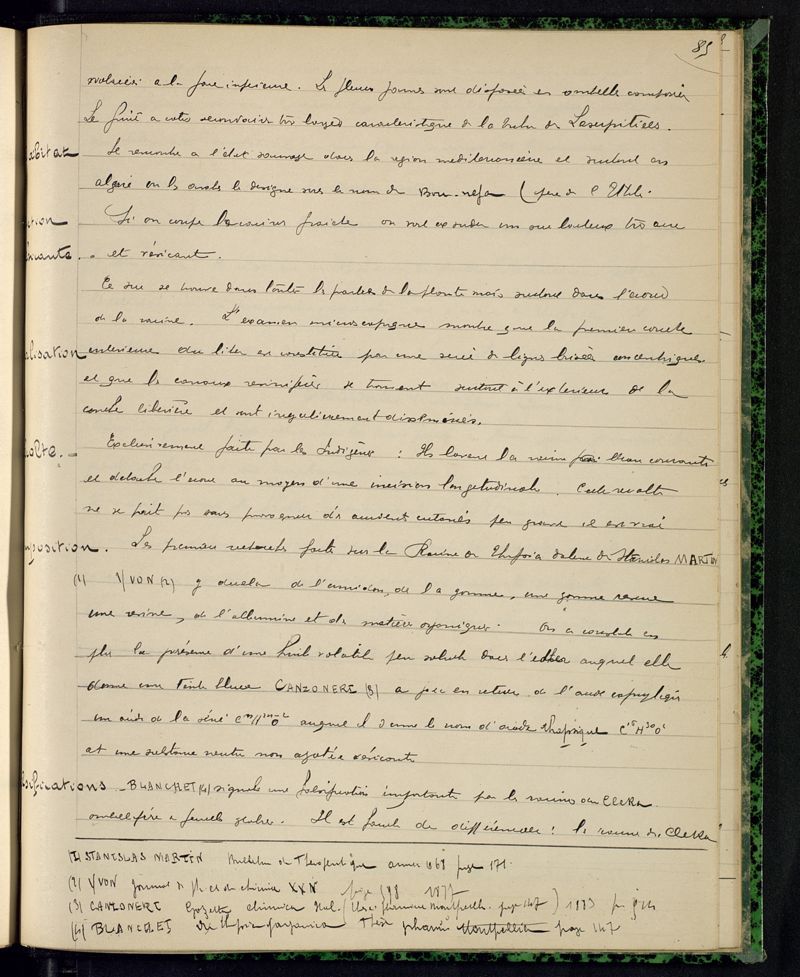 85
à la face inférieure. Les fleurs jaunes sont disposées en ombelle composée
Le fruit a côtes secondaires très larges caractéristique de la tribu des Laserpitiées.
abitat
Se rencontre à l'état sauvage dans la région méditerranéenne et surtout en
algérie où les arabes la désigne sous le nom de Bou-nefa (père de l'Utile.
ction
Si on coupe la racine fraiche on voit exsuder un suc laiteux très acre
icante.
et vésicant.
Ce suc se trouve dans toutes les parties de la plante mais surtout dans l'écorce
de la racine. L'examen microscopique montre que la première couche
alisation
intérieure du liber est constituée par une série de lignes brisées concentriques
et que les canaux résinifères se trouvent surtout à l'extérieur de la
couche libérienne et sont irrégulièrement disséminés.
olte.-
Exclusivement faite par les Indigènes : Ils lavent la racine l'eau courante
et détache l'écorce au moyen d'une incision longitudinale. Cette récolte
ne se fait pas sans provoquer des accidents cutanés peu graves il est vrai
mposition.
Les premières recherches faites sur la Racine de Thapsia datent de Stanislas MARTIN
(1) YVON (2) y décela de l'amidon, de la gomme, une gomme résine
une résine, de l'albumine et des matières organiques. On a constaté en
plus la présence d'une huile volatile peu soluble dans l'ether auquel elle
donne une teinte bleue CANZONERI (3) a plus en retiré de l'acide caprylique
un acide de la série auquel il donne le nom d'acide thapsique C16H30O4
et une substance neutre non azotée vésicante
lsifications
- BLANCHET (4) signale une falsification importante par la racine du Clekà
ombellifère à feuille glabre. Il est facile de différencier : la racine de Clekà
(1) STANISLAS MARTIN Bulletin de Thérapeutique année 1868 page 171.
(2) YVON journal de ph et de chimie XXV page 598 1877
(3) CANZONERI Gazette chimica Ital. (Thèse pharmacie Montpellier page 147) 1883
(4) BLANCHET du Thapsia garganica Thèse pharmacie Montpellier page 147